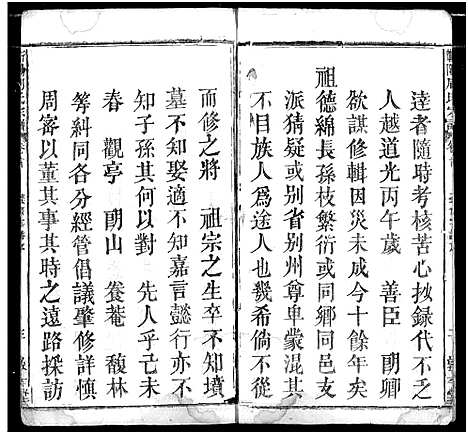 達者隨時考核苦心抄録代不乏
人越道光丙午歲　善臣　朗卿
欲謀修輯因災未成今十餘年矣
祖德綿長孫枝繁衍或同邑而支
派猜疑或别省别州尊卑蒙混其
不目族人為途人也幾希倘不從
而修之將　祖宗之生卒不知墳
墓不知娶適不知嘉言懿行亦不
知子孫其何以對　先人乎于是
春　觀亭　朗山　養菴　馥林
等糾同各分經管倡議肇修詳慎
周審以董其事其時之遠路採訪